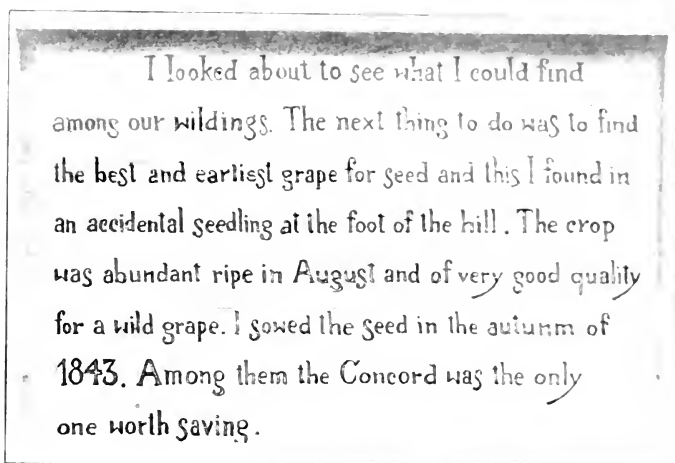 I looked about to see what I could find
among our wildings. The next thing to do was to find
the best and earliest grape for seed and this I found in
an accidental seedling at the foot of the hill. The crop
was abundant ripe in August and of very good quality
for a wild grape. I sowed the seed in the autumn of
1843. Among them the Concord was the only
one worth saving.